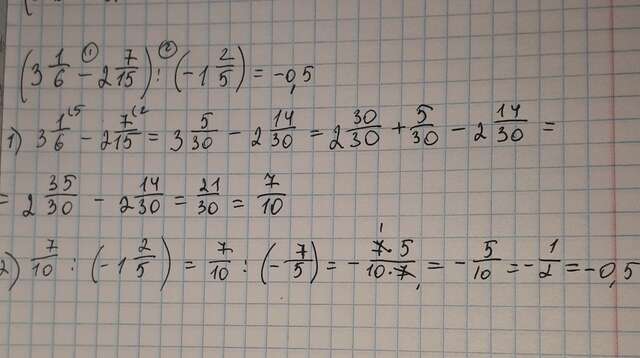 (3 1/6 - 2 7/15) : (-1 2/5) = -0,5
1) 3 1/6 - 2 7/15 = 3 5/30 - 2 14/30 = 2 30/30 + 5/30 - 2 14/30 =
= 2 35/30 - 2 14/30 = 21/30 = 7/10
2) 7/10 : (-1 2/5) = 7/10 : (-7/5) = - 7·5/10·7 = - 5/10 = - 1/2 = -0,5